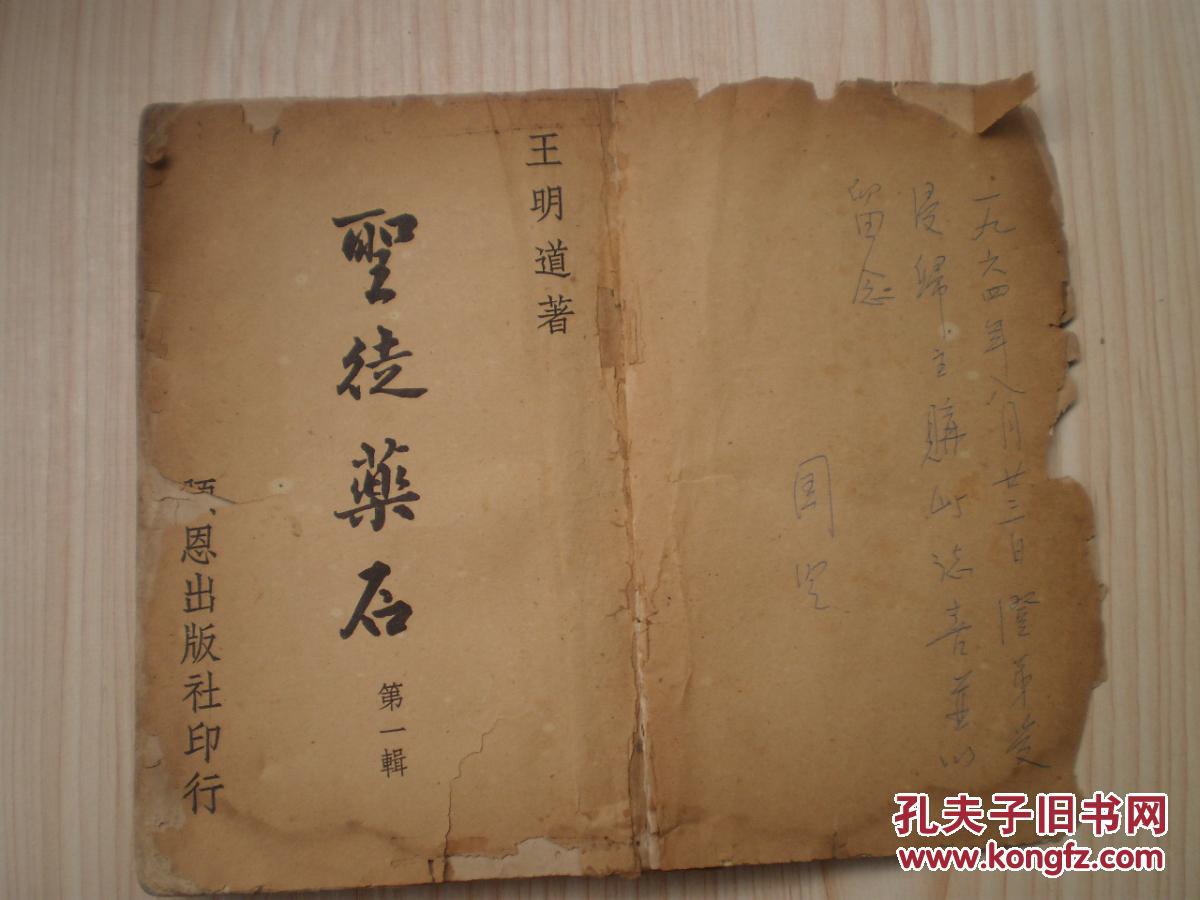 王明道著
聖徒藥石
第一輯
恩出版社印行
一九六四年八月廿三日澄弟受
浸歸主購此誌喜並以
留念
国
孔夫子旧书网
www.kongfz.com